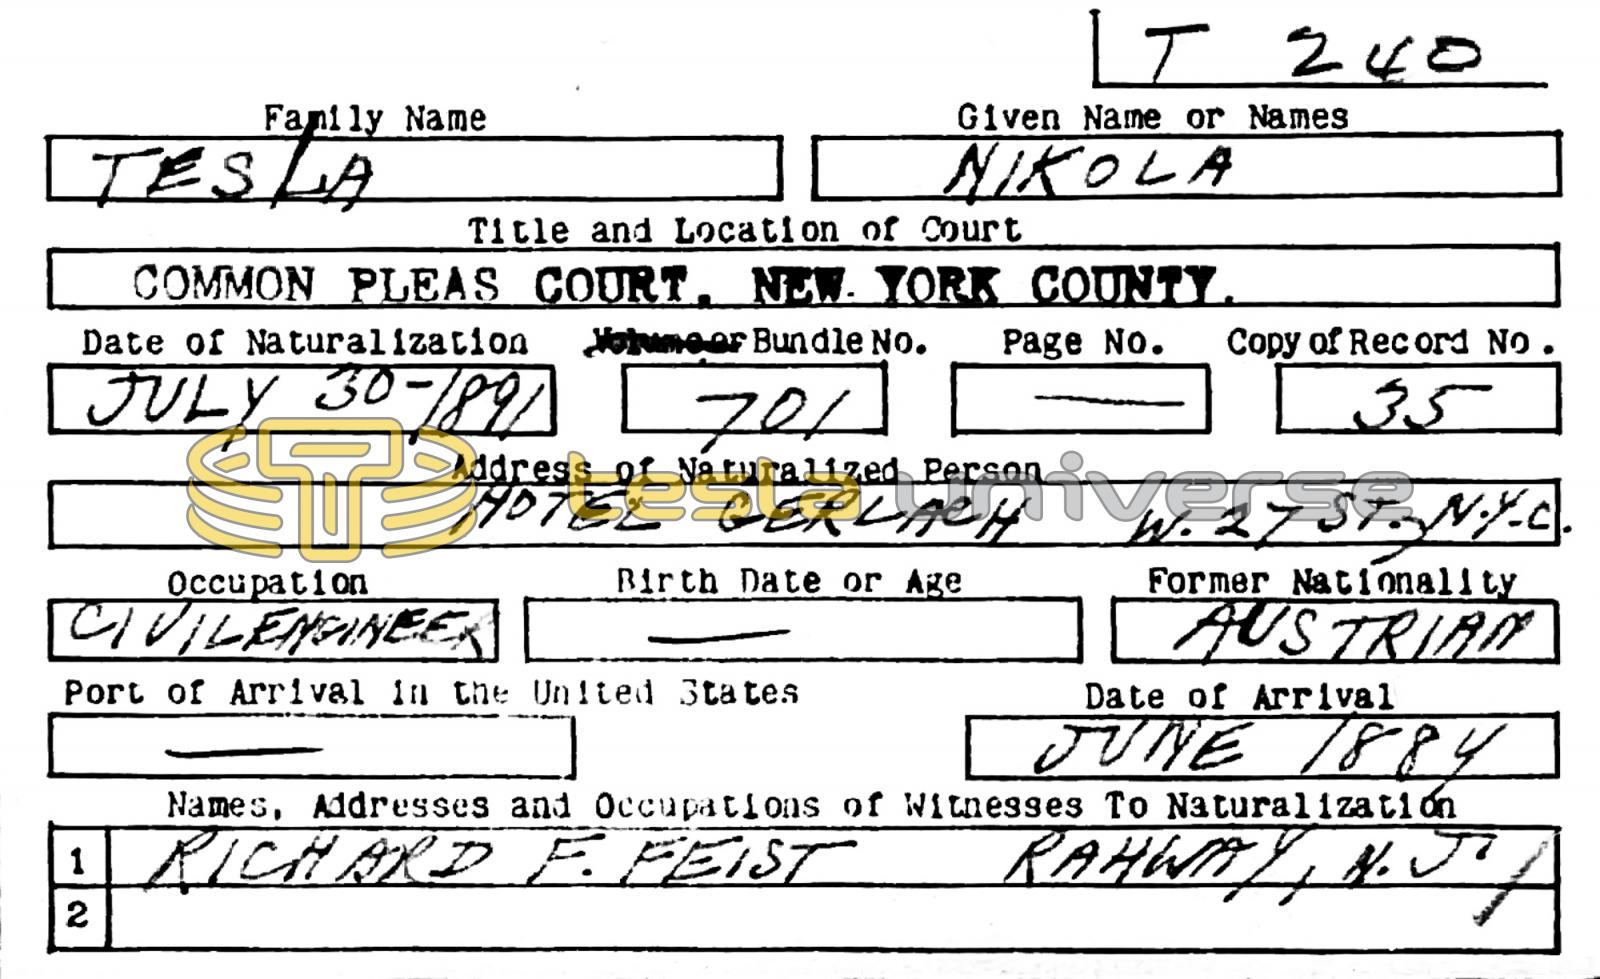 T 240
Family Name Given Name or Names
TESLA NIKOLA
Title and Location of Court
COMMON PLEAS COURT, NEW YORK COUNTY.
Date of Naturalization Volume or Bundle No. Page No. Copy of Record No.
JULY 30-1891 701 — 35
Address of Naturalized Person
tesla universe
HOTEL GERLACH W. 27 ST., N.Y.C.
Occupation Birth Date or Age Former Nationality
CIVIL ENGINEER — AUSTRIAN
Port of Arrival in the United States Date of Arrival
— JUNE 1884
Names, Addresses and Occupations of Witnesses To Naturalization
1 RICHARD F. FEIST RAHWAY, N.J.
2